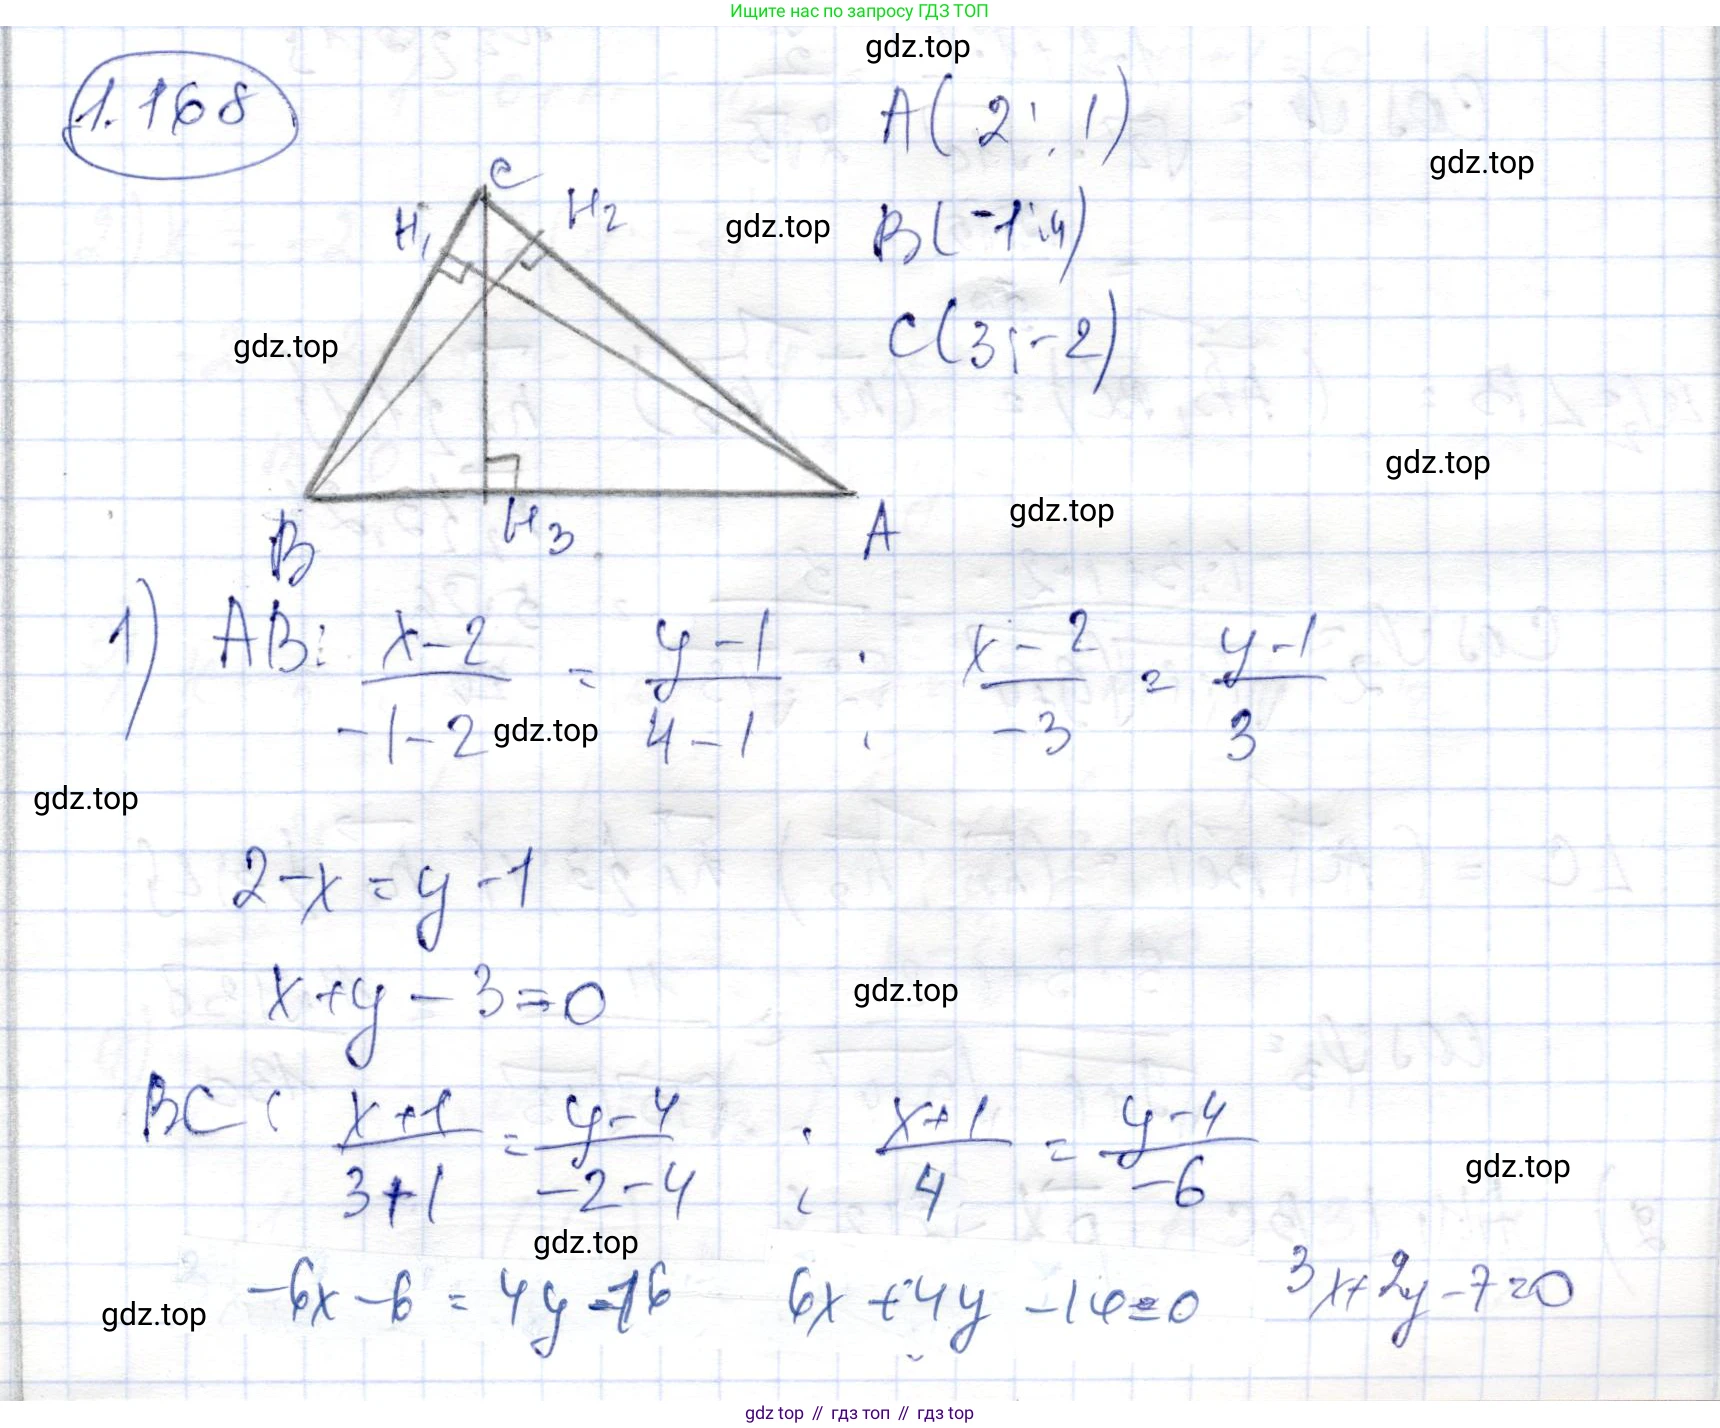 Ищите нас по запросу ГДЗ ТОП
gdz.top
1.168
A(2; 1)
gdz.top
C
H₁
H₂
gdz.top
B(-1;4)
gdz.top
C(3;-2)
gdz.top
gdz.top
B
H₃
A
1) AB: (x-2)/(-1-2) = (y-1)/(4-1) ; (x-2)/(-3) = (y-1)/3
gdz.top
gdz.top
2-x=y-1
x+y-3=0
gdz.top
BC: (x+1)/(3+1) = (y-4)/(-2-4) ; (x+1)/4 = (y-4)/(-6)
gdz.top
gdz.top
-6x-6=4y-16 6x+4y-10=0 3x+2y-7=0
gdz.top
gdz top // гдз топ // гдз top